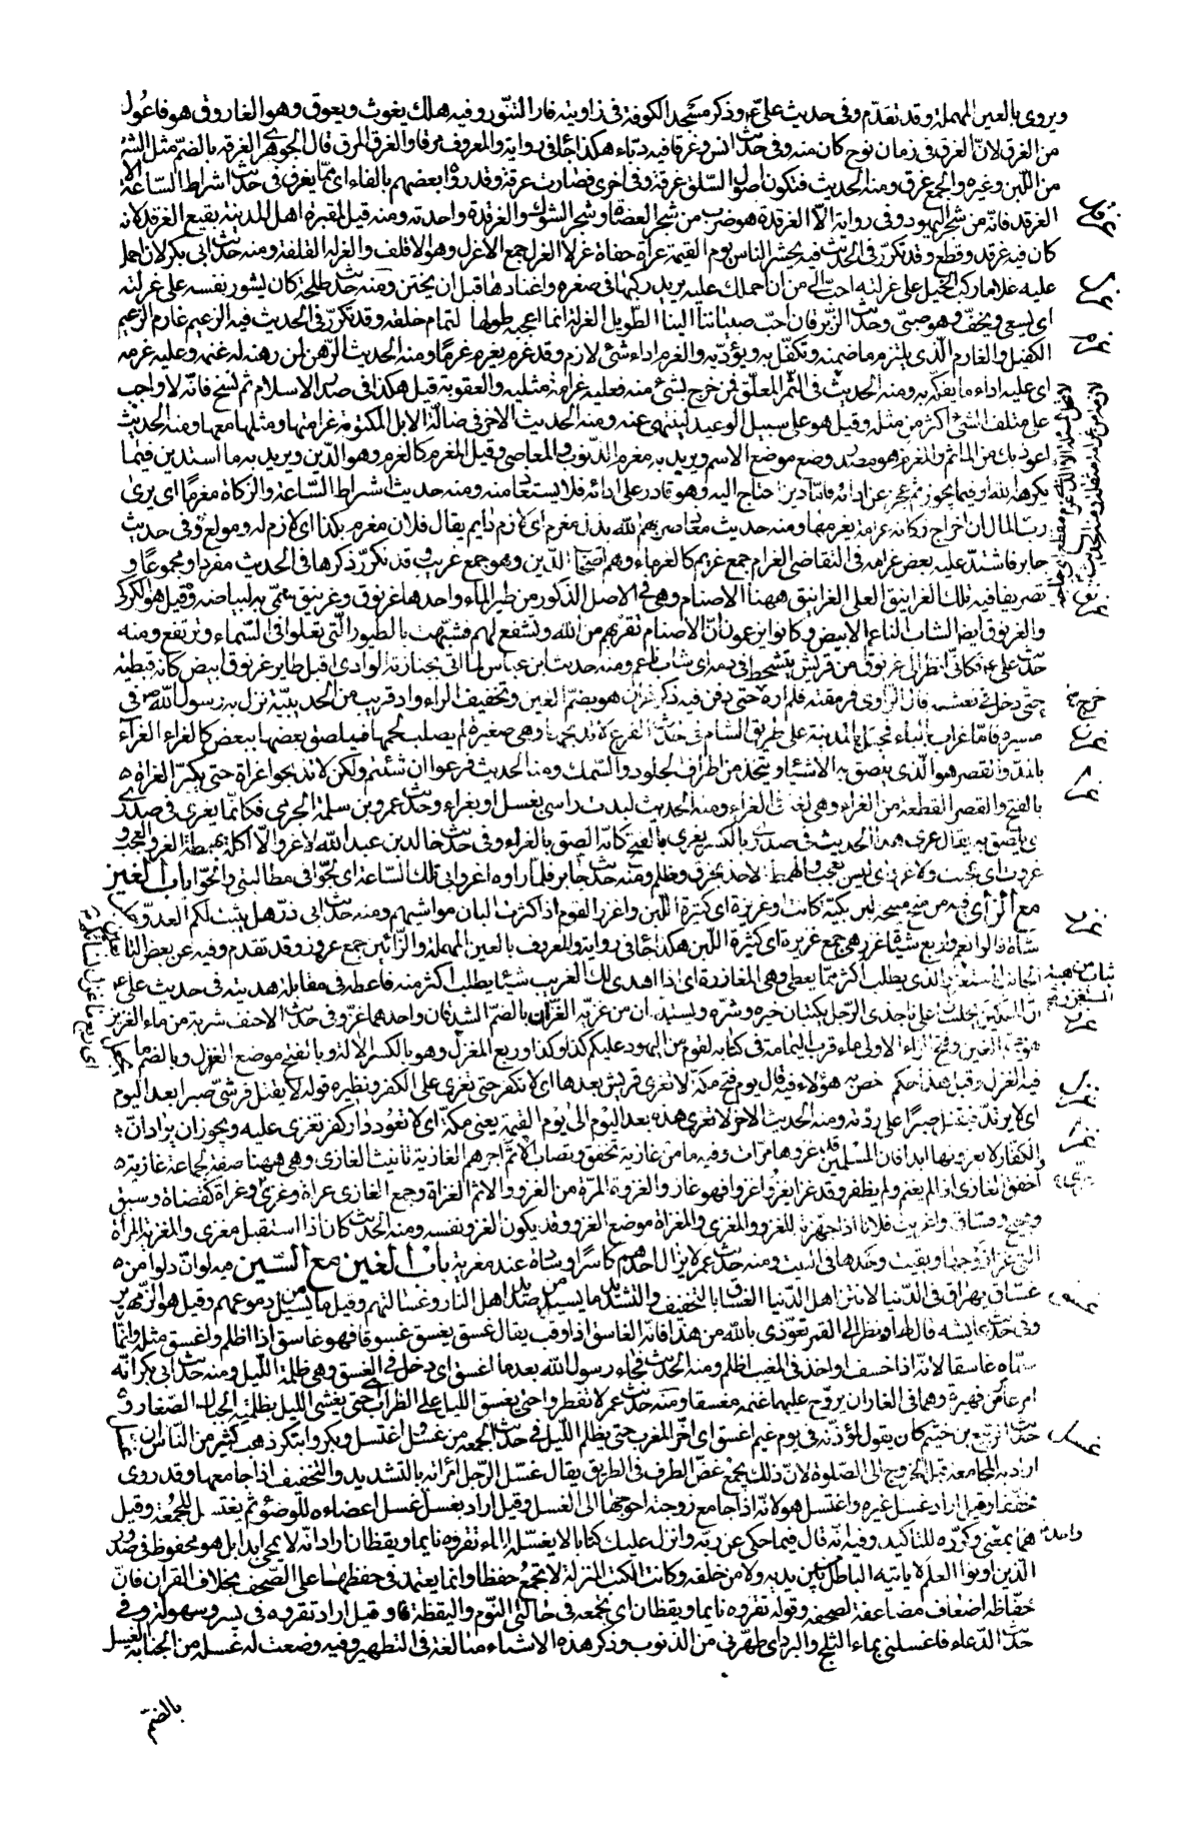 ويروى بالعين المهملة وقد تقدم وفى حديث على ع وذكر مسجد الكوفة فى زاويته فار التنور وفيه هلك يغوث ويعوق وهو الغاروق هو فاعول
من الغرق لان الغرق فى زمان نوح كان منه وفى حديث انس وغرقا فيه دباء هكذا جاء فى رواية والمعروف مرقا والغرق المرق قال الجوهرى الغرقة بالضم مثل الشربة
من اللبن وغيره والجمع غرق ومنه الحديث فتكون اصول السلق غرقة وفى اخرى فصارت غرقة وقد رواه بعضهم بالفاء اى مما يغرف فى حديث اشراط الساعة الا
الغرقد فانه من شجر اليهود وفى رواية الا الغرقدة هو ضرب من شجر العضاه وشجر الشوك والغرقدة واحدته ومنه قيل لمقبرة اهل المدينة بقيع الغرقد لانه
كان فيه غرقد وقطع وقد تكرر فى الحديث فيه يحشر الناس يوم القيمة عراة حفاة غرلا الغرل جمع الاغرل وهو الاقلف والغرلة القلفة ومنه حديث ابى بكر لان احمل
عليه غلاما ركب الخيل على غرلته احب الى من ان احملك عليه يريد ركبها فى صغره واعتادها قبل ان يختن ومنه حديث طلحة كان يشور نفسه على غرلته
اى يسعى ويخف وهو صبى وحديث الزبرقان احب صبياننا الينا الطويل الغرلة انما اعجبه طولها لتمام خلقه وقد تكرر فى الحديث فيه الزعيم غارم الزعيم
الكفيل والغارم الذى يلتزم ما ضمنه وتكفل به ويؤديه والغرم اداء شئ لازم وقد غرم يغرم غرما ومنه الحديث الرهن لمن رهنه له غنمه وعليه غرمه
اى عليه اداء ما يفكه به ومنه الحديث فى الثمر المعلق فمن خرج بشئ منه فعليه غرامة مثليه والعقوبة قيل هكذا فى صدر الاسلام ثم نسخ فانه لا واجب
على متلف الشئ اكثر من مثله وقيل هو على سبيل الوعيد لينتهى عنه ومنه الحديث الاخر فى ضالة الابل المكتومة غرامتها ومثلها معها ومنه الحديث
اعوذ بك من المأثم والمغرم هو مصدر وضع موضع الاسم ويريد به مغرم الذنوب والمعاصى وقيل المغرم كالغرم وهو الدين ويريد به ما استدين فيما
يكرهه الله او فيما يجوز ثم عجز عن ادائه فاما دين احتاج اليه وهو قادر على ادائه فلا يستعاذ منه ومنه حديث اشراط الساعة والزكاة مغرما اى يرى
رب المال ان اخراج زكاته غرامة يغرمها ومنه حديث معاذ ضربهم الله بذل مغرم اى لازم دايم يقال فلان مغرم بكذا اى لازم له ومولع وفى حديث
جابر فاشتد عليه بعض غرامه فى التقاضى الغرام جمع غريم كالغرماء وهم اصحاب الدين وهو جمع غريب وقد تكرر ذكرها فى الحديث مفردا ومجموعا و
تصريفا فيه تلك الغرانيق العلى الغرانيق ههنا الاصنام وهى فى الاصل الذكور من طير الماء واحدها غرنوق وغرنيق سمى به لبياضه وقيل هو الكركى
والغرنوق ايضا الشاب الناعم الابيض وكانوا يزعمون ان الاصنام تقربهم من الله وتشفع لهم فشبهت بالطيور التى تعلوا فى السماء وترتفع ومنه
حديث على ع فكانى انظر الى غرنوق من قريش يتشحط فى دمه اى شاب ناعم ومنه حديث ابن عباس لما اتى بجنازته الوادى اقبل طاير غرنوق ابيض كانه قبطية
حتى دخل فى نعشه قال الراوى فرمقته فلم اره خرج حتى دفن فيه ذكر غران هو بضم الغين وتخفيف الراء واد قريب من الحديبية نزل به رسول الله ص فى
مسيره فاما غراب بالباء فجبل بالمدينة على طريق الشام فى حديث الفرع لا تذبحها وهى صغيرة لم يصلب لحمها فيلصق بعضها ببعض كالغراء الغراء
بالمد والقصر هو الذى يلصق به الاشياء ويتخذ من اطراف الجلود والسمك ومنه الحديث فرعوا ان شئتم ولكن لا تذبحوا غراة حتى يكبر الغراة
بالفتح والقصر القطعة من الغراء وهى لغة فى الغراء ومنه الحديث لبدت راسى بغسل او بغراء وحديث عمرو بن سلمة الجرمى فكانما يغرى فى صدرى
اى يلصق به يقال غرى هذا الحديث فى صدرى بالكسر يغرى بالفتح كانه الصق بالغراء وفى حديث خالد بن عبد الله لا غرو الا اكلة بهمطة الغرو العجب و
غروت اى عجبت ولا غرو اى ليس بعجب والهمط الاخذ بخرق وظلم ومنه حديث جابر فلما راوه اغروابى تلك الساعة اى لجوا فى مطالبتى والحوا باب الغين
مع الزاى فيه من منح منيحة لبن بكية كانت او غزيرة اى كثيرة اللبن واغزر القوم اذا كثرت البان مواشيهم ومنه حديث ابى ذر هل يثبت لكم العدو حلب
شاة قالوا نعم واربع شياه غزر هى جمع غزيرة اى كثيرة اللبن هكذا جاء فى رواية والمعروف بالعين المهملة والزائين جمع عزوز وقد تقدم وفيه عن بعض التابعين
الجانب المستغزر الذى يطلب اكثر مما يعطى وهى المغازرة اى اذا اهدى لك الغريب شيئا يطلب اكثر منه فاعطه فى مقابلة هديته فى حديث على ع
ان الملكين يجلسان على ناجذى الرجل يكتبان خيره وشره ويستمدان من غزيه الغزان بالضم الشدقان واحدهما غز وفى حديث الاحنف شربة من ماء الغزيز
هو بضم الغين وفتح الزاء الاولى ماء قرب اليمامة فى كتابه لقوم من اليهود عليكم كذا وكذا وربع المغزل وهو بالكسر الالة وبالفتح موضع الغزل وبالضم ما يجعل
فيه الغزل وقيل هذا حكم خص به هؤلاء فيه قال يوم فتح مكة لا تغزى قريش بعدها اى لا تكفر حتى تغزى على الكفر ونظيره قوله لا يقتل قرشى صبرا بعد اليوم
اى لا يرتد فيقتل صبرا على ردته ومنه الحديث الاخر لا تغزى هذه بعد اليوم الى يوم القيمة يعنى مكة اى لا تعود دار كفر تغزى عليه ويجوز ان يراد ان
الكفار لا يغزونها ابدا فان المسلمين قد غزوها مرات وفيه ما من غازية تخفق وتصاب الا تم اجرهم الغازية تانيث الغازى وهى ههنا صفة لجماعة غازية
اخفق الغازى اذا لم يغنم ولم يظفر وقد غزا يغزوا غزوا فهو غاز والغزوة المرة من الغزو والاسم الغزاة وجمع الغازى غزاة وغزى وغزاة كقضاة وسبق
وحجيج وفساق واغزيت فلانا اذا جهزته للغزو والمغزى والمغزاة موضع الغزو وقد يكون الغزو نفسه ومنه الحديث كان اذا استقبل مغزى والمغزية المرأة
التى غزا زوجها وبقيت وحدها فى البيت ومنه حديث عمر لا يزال احدهم كاسرا وساده عند مغزية باب الغين مع السين فيه لو ان دلوا من
غساق يهراق فى الدنيا لانتن اهل الدنيا الغساق بالتخفيف والتشديد ما يسيل من صديد اهل النار وغسالتهم وقيل ما يسيل من دموعهم وقيل هو الزمهرير
وفى حديث عايشة قال لها ونظر الى القمر تعوذى بالله من هذا فانه الغاسق اذا وقب يقال غسق يغسق غسوقا فهو غاسق اذا اظلم واغسق مثله وانما
سماه غاسقا لانه اذا خسف او اخذ فى المغيب اظلم ومنه الحديث فجاء رسول الله بعد ما اغسق اى دخل فى الغسق وهى ظلمة الليل ومنه حديث ابى بكر انه
امر عامر بن فهيرة وهما فى الغار ان يروح عليهما غنمه مغسقا ومنه حديث عمر لا تفطروا حتى يغسق الليل على الظراب حتى يغشى الليل بظلمته الجبال الصغار وفى
حديث الربيع بن خثيم كان يقول لمؤذنه فى يوم غيم اغسق اى اخر المغرب حتى يظلم الليل فى حديث الجمعة من غسل واغتسل وبكر وابتكر ذهب كثير من الناس ان
اراد به المجامعة قبل الخروج الى الصلوة لان ذلك يجمع غض الطرف فى الطريق يقال غسل الرجل امرأته بالتشديد والتخفيف اذا جامعها وقد روى
مخففا وقيل اراد غسل غيره واغتسل هو لانه اذا جامع زوجته احوجها الى الغسل وقيل اراد بغسل غسل اعضاءه للوضوء ثم يغتسل للجمعة وقيل
هما بمعنى وكرره للتاكيد وفيه انه قال فيما حكى عن ربه وانزل عليك كتابا لا يغسله الماء تقروه نايما ويقظان اراد انه لا يمحى ابدا بل هو محفوظ فى صدور
الذين اوتوا العلم لا ياتيه الباطل من بين يديه ولا من خلفه وكانت الكتب المنزلة لا تجمع حفظا وانما يعتمد فى حفظها على الصحف بخلاف القران فان
حفاظه اضعاف مضاعفة لصحفه وقوله تقروه نايما ويقظان اى تجمعه فى حالتى النوم واليقظة وقيل اراد تقروه فى يسر وسهولة وفى
حديث الدعاء فاغسلنى بماء الثلج والبرد اى طهرنى من الذنوب وذكر هذه الاشياء مبالغة فى التطهير وفيه وضعت له غسله من الجنابة الغسل
بالضم